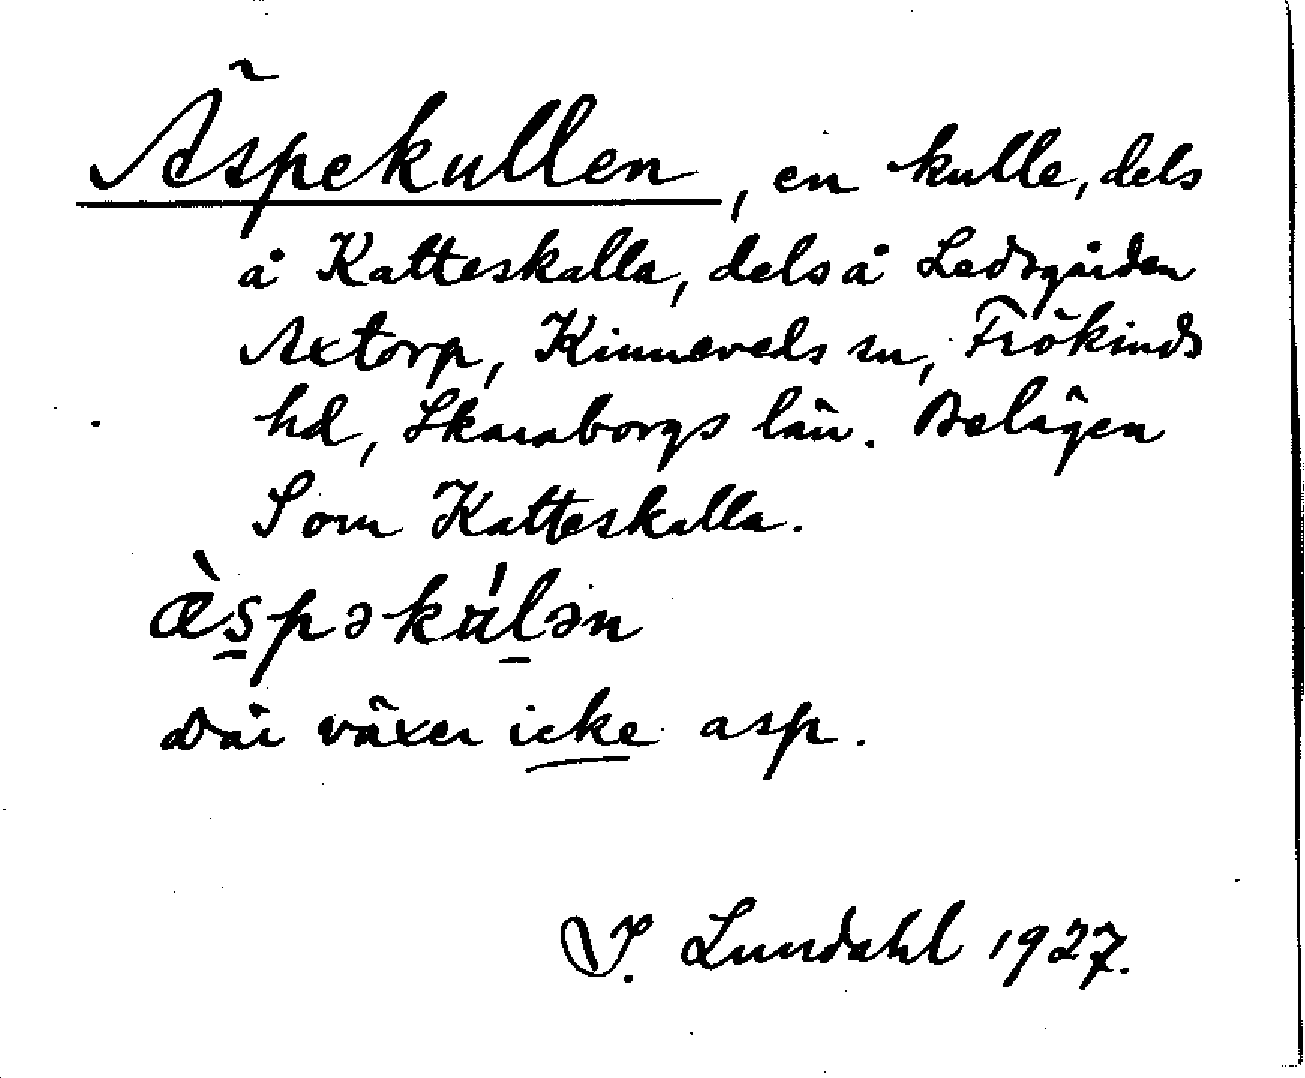 Äspekullen, en kulle, dels
å Katteskalla, dels å Ledsgården
Axtorp, Kinneveds sn, Frökinds
hd, Skaraborgs län. Belägen
Som Katteskalla.
æ̀spəkúlən
Där växer icke asp.
I. Lundahl 1927.